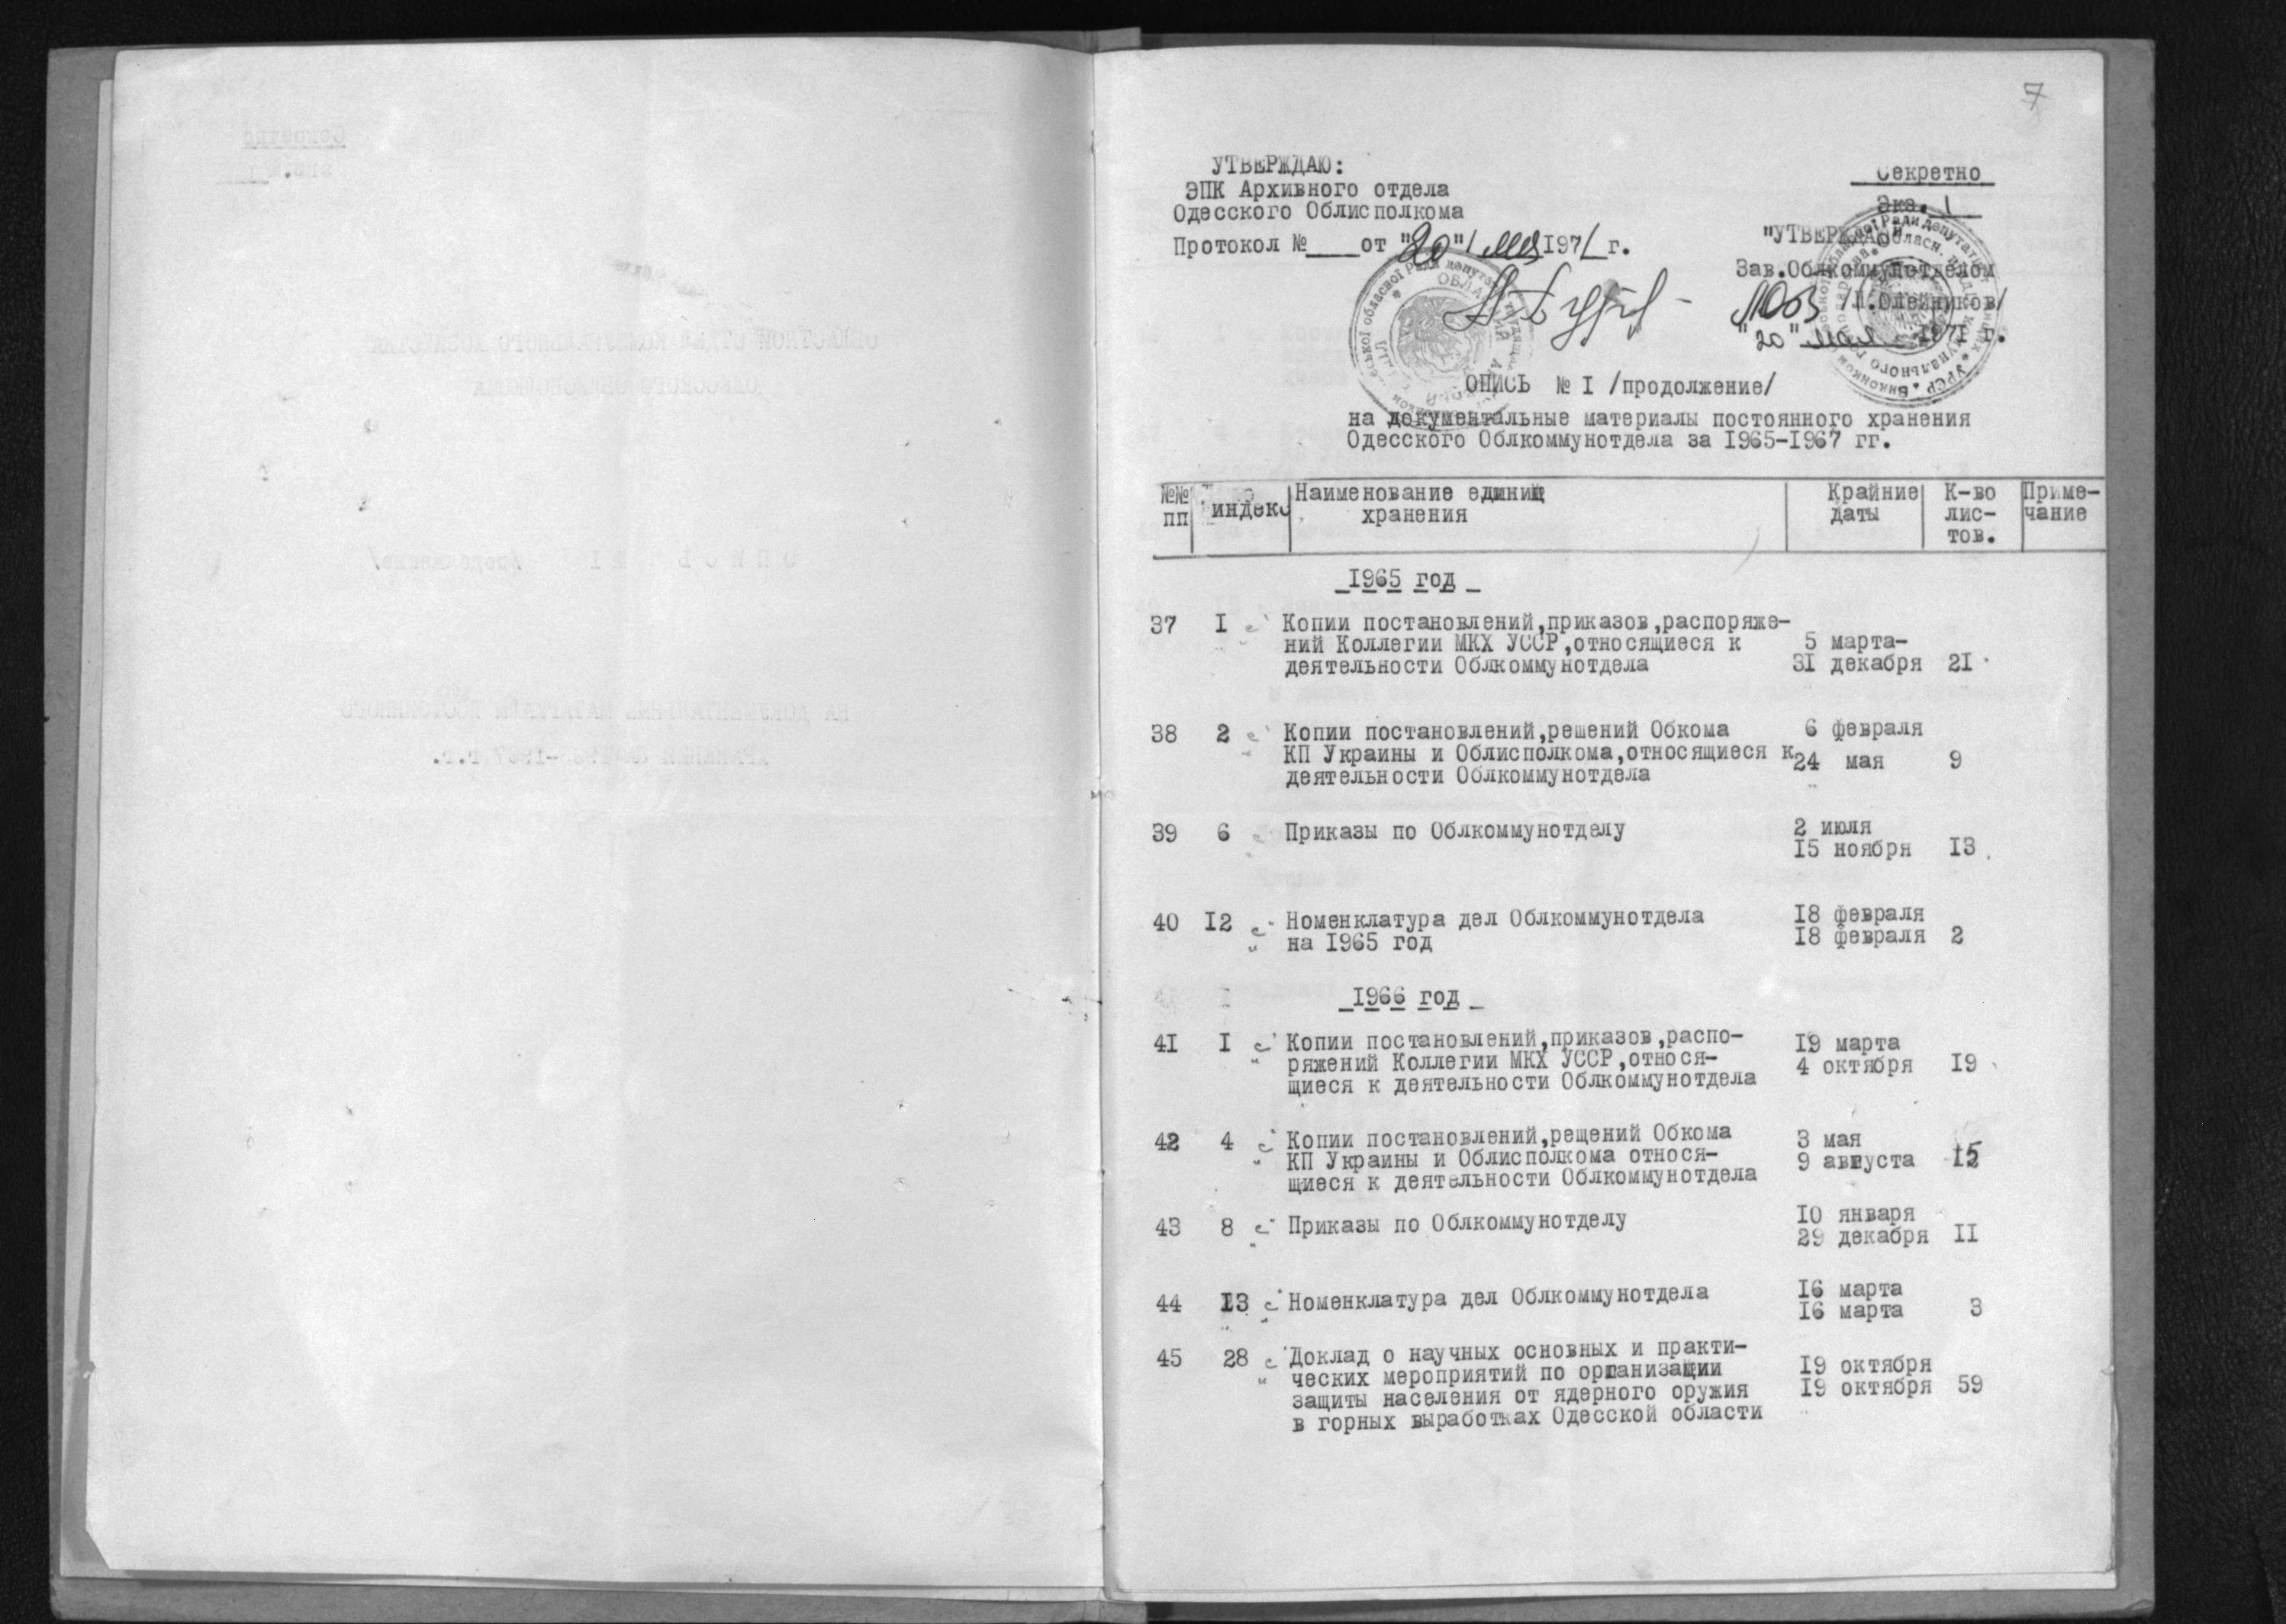 7
УТВЕРЖДАЮ:
ЭПК Архивного отдела
Одесского Облисполкома
Протокол №___от "20" мая 1971 г.
Секретно
Экз. 1
"УТВЕРЖДАЮ"
Зав.Облкоммунотделом
/П.Олейников/
"20" мая 1971 г.
ОПИСЬ № I /продолжение/
на документальные материалы постоянного хранения
Одесского Облкоммунотдела за I965-I967 гг.
№№ пп
индекс
Наименование единиц хранения
Крайние даты
К-во лис-тов.
Приме-чание
I965 год
37 I Копии постановлений,приказов,распоряже-
ний Коллегии МКХ УССР,относящиеся к 5 марта-
деятельности Облкоммунотдела 3I декабря 2I
38 2 Копии постановлений,решений Обкома 6 февраля
КП Украины и Облисполкома,относящиеся к 24 мая 9
деятельности Облкоммунотдела
39 6 Приказы по Облкоммунотделу 2 июля
I5 ноября I3
40 I2 Номенклатура дел Облкоммунотдела I8 февраля
на I965 год I8 февраля 2
I966 год
4I I Копии постановлений,приказов,распо- I9 марта
ряжений Коллегии МКХ УССР,относя- 4 октября I9
щиеся к деятельности Облкоммунотдела
42 4 Копии постановлений,рещений Обкома 3 мая
КП Украины и Облисполкома относя- 9 августа 15
щиеся к деятельности Облкоммунотдела
43 8 Приказы по Облкоммунотделу I0 января
29 декабря II
44 I3 Номенклатура дел Облкоммунотдела I6 марта
I6 марта 3
45 28 Доклад о научных основных и практи-
ческих мероприятий по организации I9 октября
защиты населения от ядерного оружия I9 октября 59
в горных выработках Одесской области